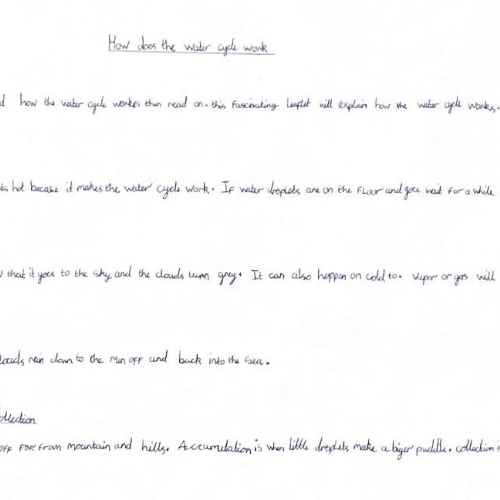 How does the water cycle work
d how the water cycle workes then read on. this fascinating leaflet will explain how the water cycle workes.
hot becase it makes the water cycle work. If water droplets are on the floor and you wait for a while
that it goes to the sky and the clouds turn grey. It can also happen on cold to. Vapor or gas will
clouds rain down to the run off and back into the sea.
collection
off for from mountain and hills. Accumulation is when little droplets make a biger puddle. collection i